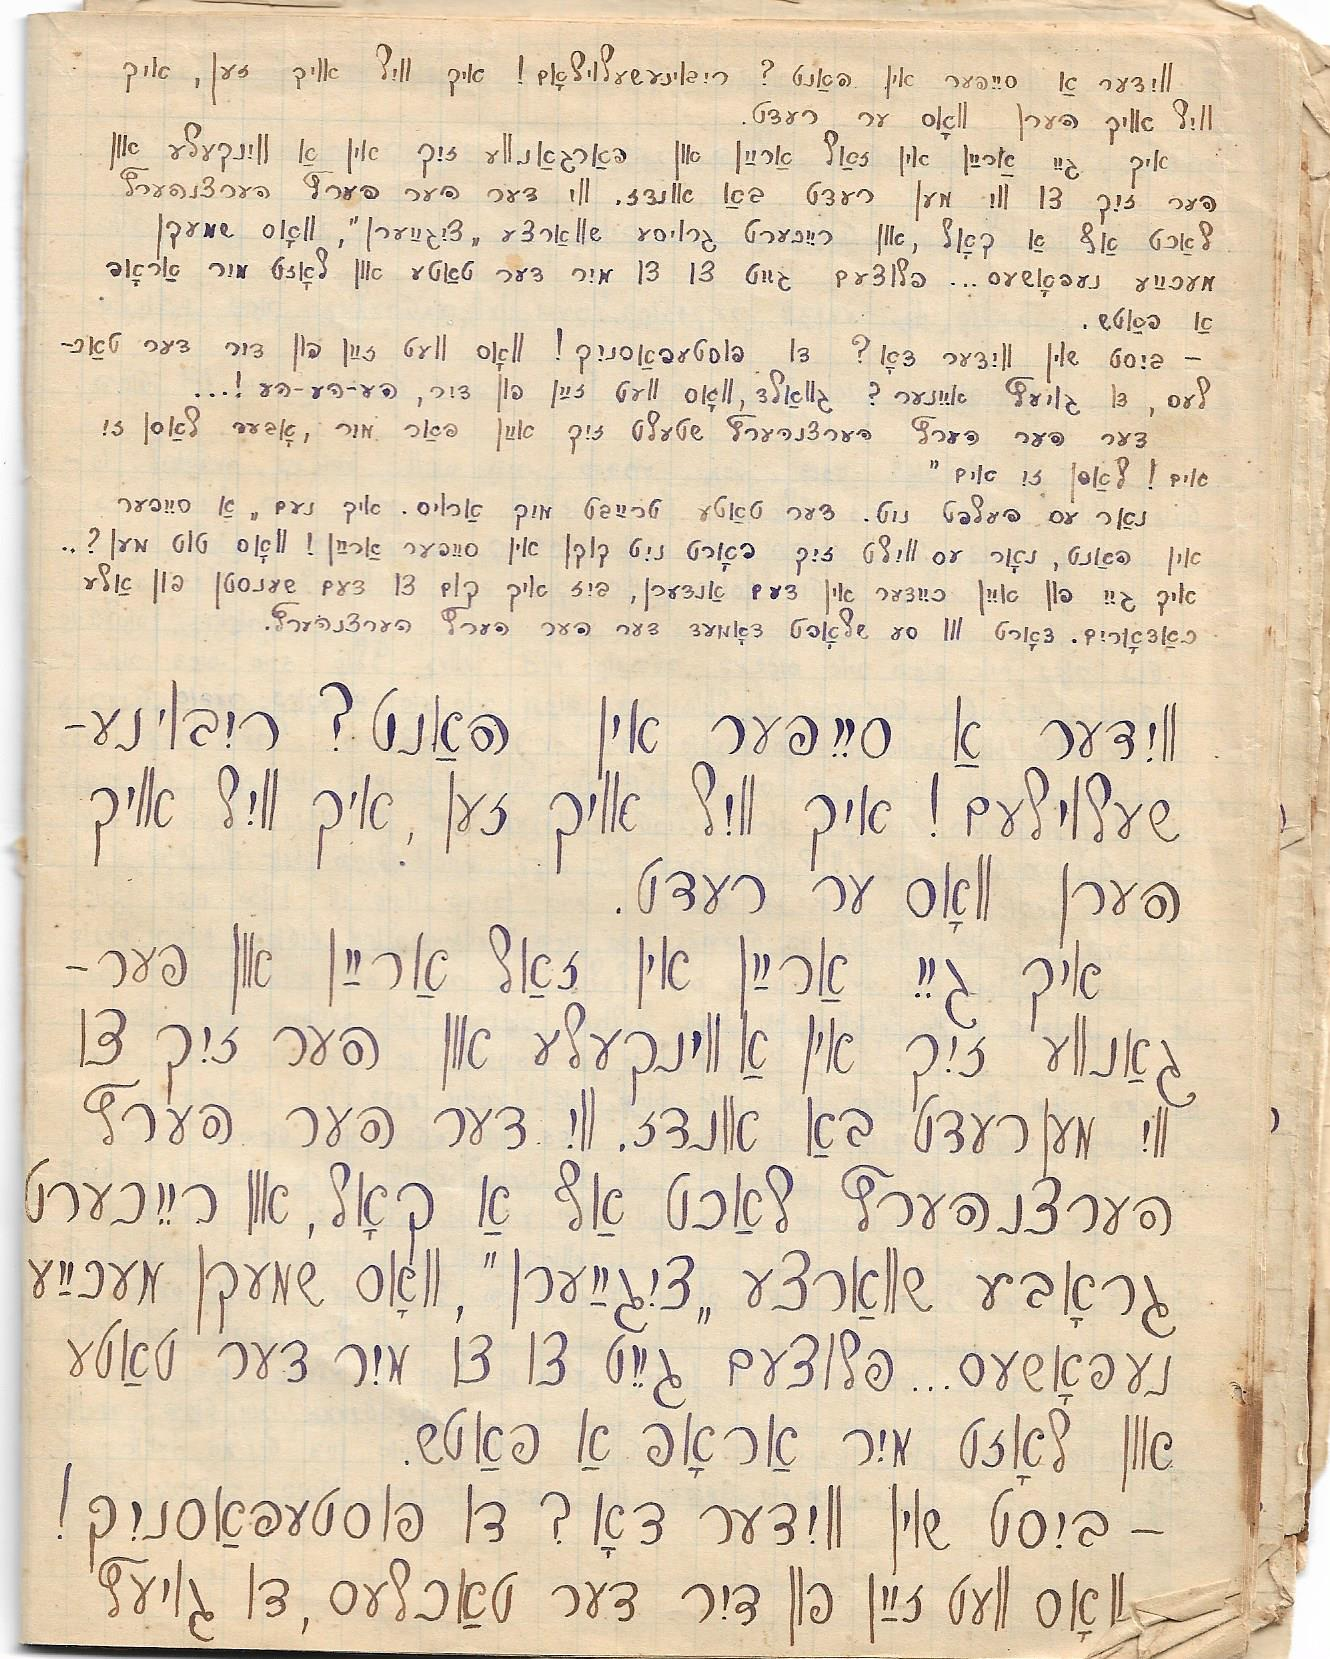 ווידער אַ סייפער אין האַנט? ריבוינעשעלוילאָם! איך וויל אייך זען, איך
וויל אייך הערן וואָס ער רעדט.
איך גיי אַרײַן אין זאַל אַרײַן און פאַרגאַנווע זיך אין אַ ווינקעלע און
הער זיך צו ווי מען רעדט באַ אונדז. ווי דער הער הערץ הערצנהערץ
לאַכט אַף אַ קאָל, און רייכערט גרויסע שוואַרצע „ציגײַערן", וואָס שמעקן
מעכײַע נעפאָשעס... פלוצעם גייט צו צו מיר דער טאַטע און לאָזט מיר אַראָפּ
אַ פּאַטש.
– ביסט שוין ווידער דאָ? דו פּוסטעפּאַסניק! וואָס וועט זײַן פון דיר דער טאַכ–
לעס, דו גויעץ איינער? גוואַלד, וואָס וועט זײַן פון דיר, הע-הע-הע!...
דער הער הערץ הערצנהערץ שטעלט זיך אײַן פאַר מיר, אָבער לאָסן זי
אים! לאָסן זי אים"
נאָר עס העלפט ניט. דער טאַטע טרײַבט מיך אַרויס. איך נעם „אַ סייפער
אין האַנט, נאָר עס ווילט זיך פאָרט ניט קוקן אין סייפער אַרײַן! וואָס טוט מען?..
איך גיי פון איין כיידער אין דעם אַנדערן, ביז איך קום צו דעם שענסטן פון אַלע
כאַדאָרים. דאָרט וווּ סע שלאָפט דאָמעד דער הער הערץ הערצנהערץ.
ווידער אַ סייפער אין האַנט? ריבוינע–
שעלוילעם! איך וויל אייך זען, איך וויל אייך
הערן וואָס ער רעדט.
איך גיי אַרײַן אין זאַל אַרײַן און פער–
גאַנווע זיך אין אַ ווינקעלע און הער זיך צו
ווי מען רעדט באַ אונדז. ווי דער הער הערץ
הערצנהערץ לאַכט אַף אַ קאָל, און רייכערט
גראָבע שוואַרצע „ציגײַערן", וואָס שמעקן מעכײַע
נעפאָשעס... פלוצעם גייט צו צו מיר דער טאַטע
און לאָזט מיר אַראָפּ אַ פּאַטש.
– ביסט שוין ווידער דאָ? דו פּוסטעפּאַסניק!
וואָס וועט זײַן פון דיר דער טאַכלעס, דו גויעץ